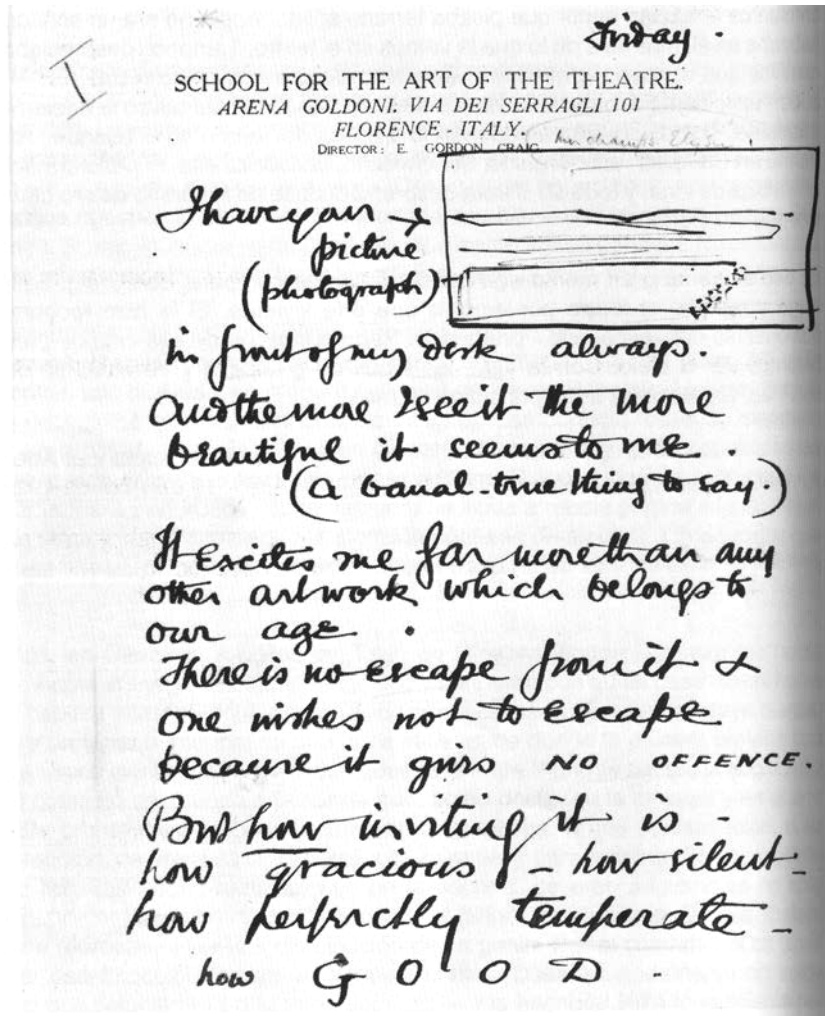 Friday.
I
SCHOOL FOR THE ART OF THE THEATRE.
ARENA GOLDONI: VIA DEI SERRAGLI 101
FLORENCE ITALY.
DIRECTOR: E. GORDON CRAIG.
I have your →
picture
(photograph)
in front of my desk always.
And the more I see it the more
beautiful it seems to me.
(a banal-true thing to say)
It excites me far more than any
other art work which belongs to
our age.
There is no escape from it &
one wishes not to escape
because it givs NO OFFENCE.
But how inviting it is -
how gracious how silent -
how perfectly temperate -
how GOOD